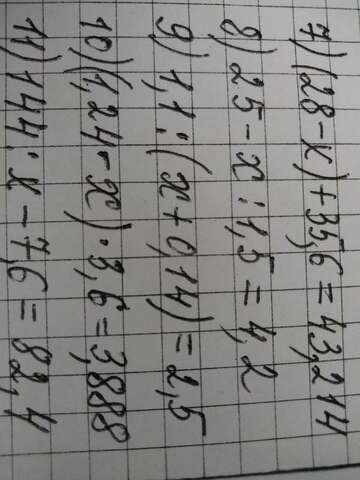 7) (28-x)+35,6=43,214
8) 25-x:1,5=4,2
9) 1,1:(x+0,14)=2,5
10) (1,24-x)·3,6=3,888
11) 144:x-7,6=82,4